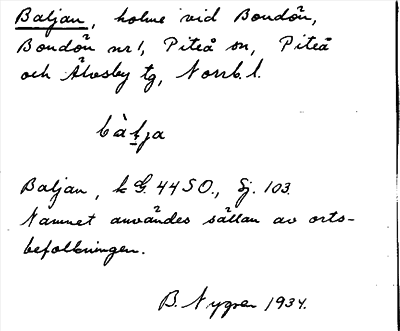 Baljan, holme vid Bondön,
Bondön nr 1, Piteå sn, Piteå
och Älvsby tg, Norrb. l.
bàl̠ja
Baljan, k G. 44 SO., Sj. 103.
Namnet användes sällan av orts-
befolkningen.
B. Nygren 1934.